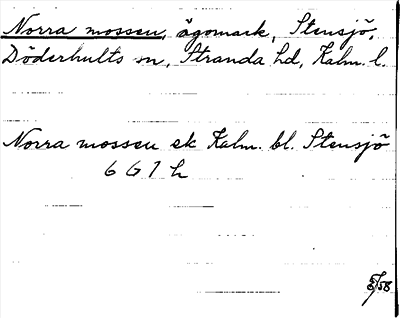 Norra mossen, ägomark, Stensjö,
Döderhults sn, Stranda hd, Kalm. l.
Norra mossen ek Kalm. bl. Stensjö
6 G 7 h
5/58